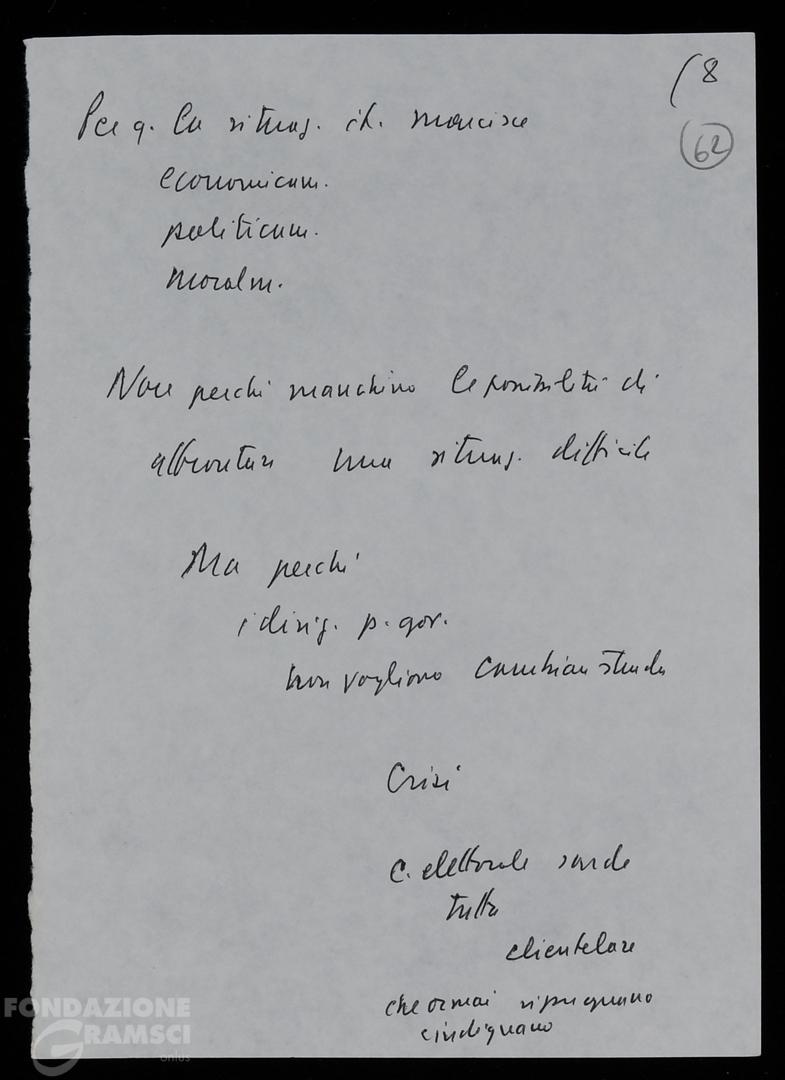 (8
62
Per q. la situaz. it. marcisce
economicam.
politicam.
moralm.
Non perché manchino le possibilità di
affrontare una situaz. difficile
Ma perché
i dirig. p. gov.
non vogliono cambiare strada
Crisi
C. elettorale sarda
tutta
clientelare
che ormai ripugnano
e indignano
FONDAZIONE
GRAMSCI
onlus